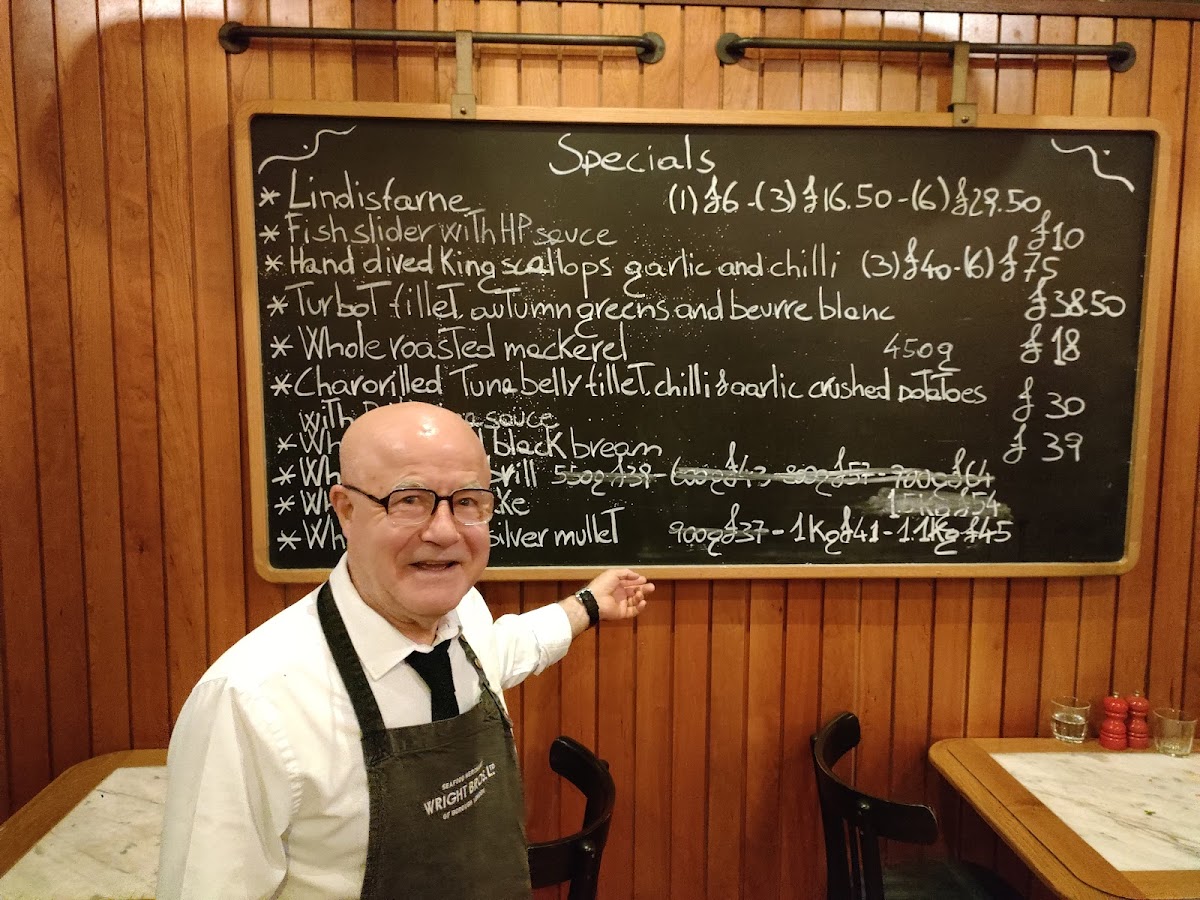 Specials
* Lindisfarne (1) £6 - (3) £16.50 - (6) £29.50
* Fish slider with HP sauce £10
* Hand dived King scallops garlic and chilli (3) £40 - (6) £75
* Turbot fillet, autumn greens and beurre blanc £38.50
* Whole roasted mackerel 450g £18
* Chargrilled Tuna belly fillet, chilli & garlic crushed potatoes £30
with sauce
* Wh black bream £39
* Wh rill 550g £39 - 600g £43 - 800g £57 - 900g £64
* Wh ke 1.5Kg £54
* Wh silver mullet 900g £37 - 1Kg £41 - 1.1Kg £45
SEAFOOD MERCHANTS
WRIGHT BROS. LTD
OF BOROUGH MARKET